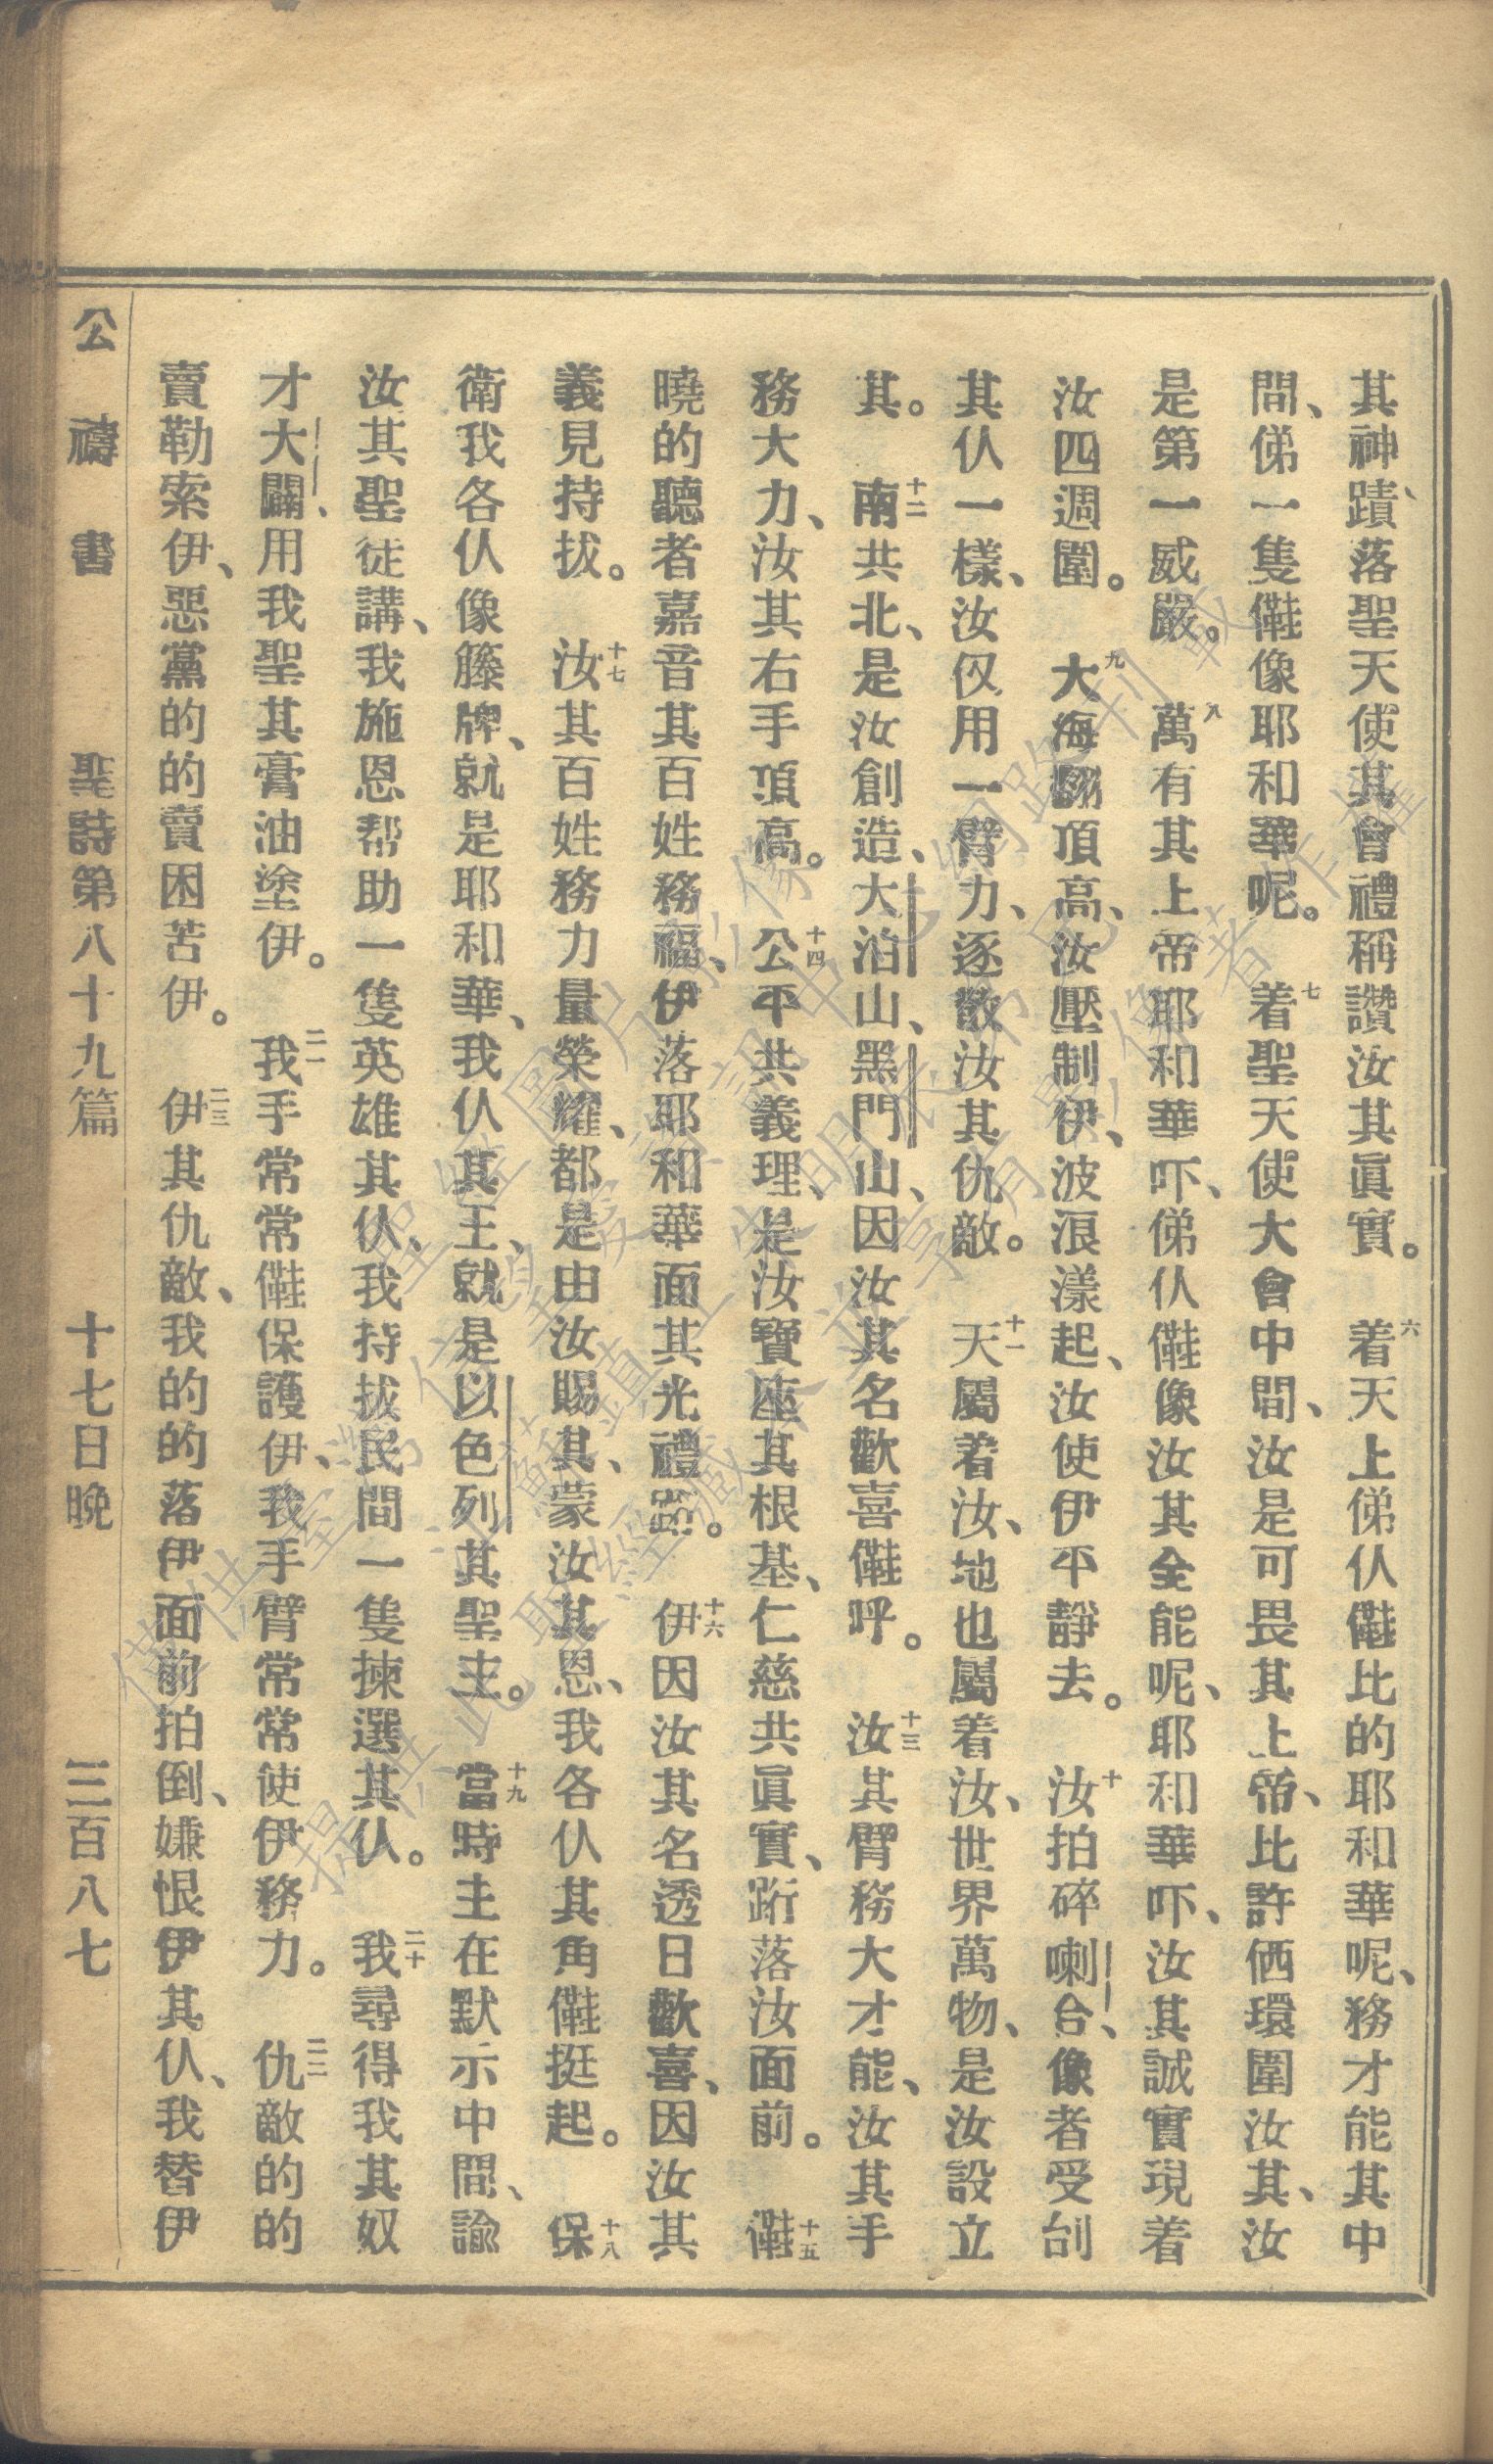 其神蹟、落聖天使其會禮稱讚汝其眞實。六着天上俤仈㒕比的耶和華呢、務才能其中
間、俤一隻㒕像耶和華呢。七着聖天使大會中間、汝是可畏其上帝、比許値環圍汝其、汝
是第一威嚴。八萬有其上帝耶和華吓、俤仈㒕像汝其全能呢、耶和華吓、汝其誠實現着
汝四週圍。九大海翻頂高、汝壓制伊、波浪漾起、汝使伊平靜去。十汝拍碎喇合、像者受刣
其仈一樣、汝伩用一臂力、逐散汝其仇敵。十一天屬着汝、地也屬着汝、世界萬物、是汝設立
其。十二南共北、是汝創造、大泊山、黑門山、因汝其名歡喜㒕呼。十三汝其臂務大才能、汝其手
務大力、汝其右手頂高。十四公平共義理、是汝寶座其根基、仁慈共眞實、跡落汝面前。十五㒕
曉的聽者嘉音其百姓務福、伊落耶和華面其光禮跡。十六伊因汝其名透日歡喜、因汝其
義見持拔。十七汝其百姓務力量榮耀、都是由汝賜其、蒙汝其恩、我各仈其角㒕挺起。十八保
衛我各仈像籐牌、就是耶和華、我仈其王、就是以色列其聖主。十九當時主在默示中間、諭
汝其聖徒講、我施恩帮助一隻英雄其仈、我持拔民間一隻揀選其仈。二十我尋得我其奴
才大闢、用我聖其膏油塗伊。二一我手常常㒕保護伊、我手臂常常使伊務力。二二仇敵的的
賣勒索伊、惡黨的的賣困苦伊。二三伊其仇敵、我的的落伊面前拍倒、嫌恨伊其仈、我替伊
公禱書 聖詩第八十九篇 十七日晚 三百八七